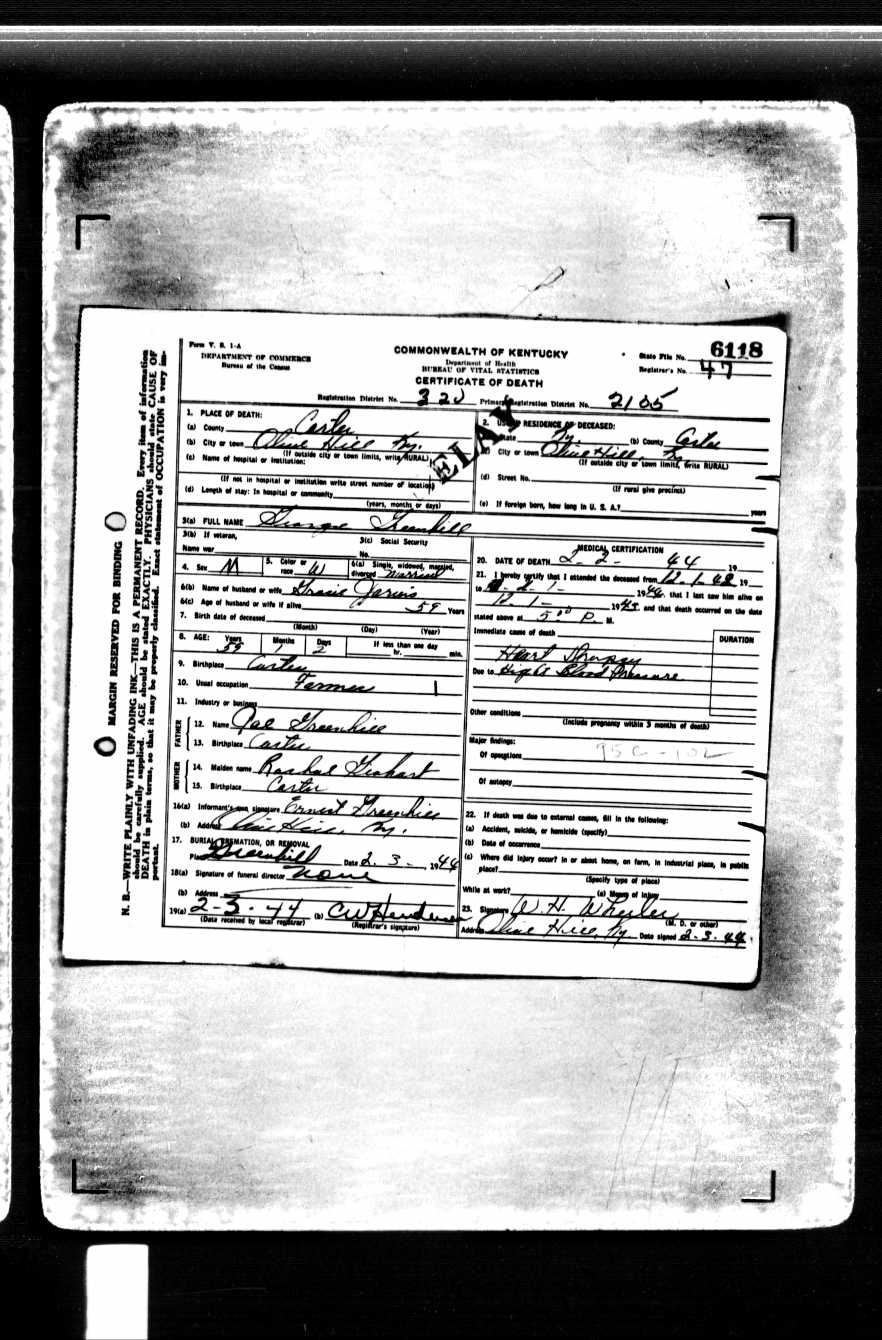 N. B.—WRITE PLAINLY WITH UNFADING INK—THIS IS A PERMANENT RECORD. Every item of information
should be carefully supplied. AGE should be stated EXACTLY. PHYSICIANS should state CAUSE OF
DEATH in plain terms, so that it may be properly classified. Exact statement of OCCUPATION is very im-
portant.
MARGIN RESERVED FOR BINDING
Form V. S. 1-A
DEPARTMENT OF COMMERCE
Bureau of the Census
COMMONWEALTH OF KENTUCKY
Department of Health
BUREAU OF VITAL STATISTICS
CERTIFICATE OF DEATH
State File No. 6118
Registrar's No. 47
Registration District No. 320 Primary Registration District No. 2105
ELAY
1. PLACE OF DEATH:
(a) County Carter
(b) City or town Olive Hill Ky.
(If outside city or town limits, write RURAL)
(c) Name of hospital or institution:
(If not in hospital or institution write street number of location)
(d) Length of stay: In hospital or community
(years, months or days)
2. USUAL RESIDENCE OF DECEASED:
State Ky (b) County Carter
City or town Olive Hill, Ky
(If outside city or town limits, write RURAL)
(d) Street No.
(If rural give precinct)
(e) If foreign born, how long in U. S. A.? years
3(a) FULL NAME George Greenhill
3(b) If veteran,
Name war
3(c) Social Security
No.
4. Sex M
5. Color or
race W
6(a) Single, widowed, married,
divorced Married
6(b) Name of husband or wife Gracie Jarvis
6(c) Age of husband or wife if alive 59 Years
7. Birth date of deceased
(Month) (Day) (Year)
8. AGE: Years Months Days If less than one day
59 1 2 hr. min.
9. Birthplace Carter
10. Usual occupation Farmer
11. Industry or business
FATHER
12. Name Joe Greenhill
13. Birthplace Carter
MOTHER
14. Maiden name Rachal Gearhart
15. Birthplace Carter
16(a) Informant's own signature Ernest Greenhill
(b) Address Olive Hill, Ky.
17. BURIAL, CREMATION, OR REMOVAL
Place Greenhill Date 2-3- 1944
18(a) Signature of funeral director None
(b) Address
19(a) 2-3-44 (b) CW Henderson
(Date received by local registrar) (Registrar's signature)
MEDICAL CERTIFICATION
20. DATE OF DEATH 2-2- 44 19
21. I hereby certify that I attended the deceased from 12-1-43 19
to 2-1- 1944, that I last saw him alive on
12-1- 1943 and that death occurred on the date
stated above at 5:00 P. M.
Immediate cause of death
DURATION
Heart Dropsy
Due to High Blood Pressure
Other conditions
(Include pregnancy within 3 months of death)
Major findings:
Of operations
Of autopsy
22. If death was due to external causes, fill in the following:
(a) Accident, suicide, or homicide (specify)
(b) Date of occurrence
(c) Where did injury occur? In or about home, on farm, in industrial place, in public
place?
(Specify type of place)
While at work? (e) Means of injury
23. Signature W. H. Wheeler
(M. D. or other)
Address Olive Hill, Ky Date signed 2-3-44.